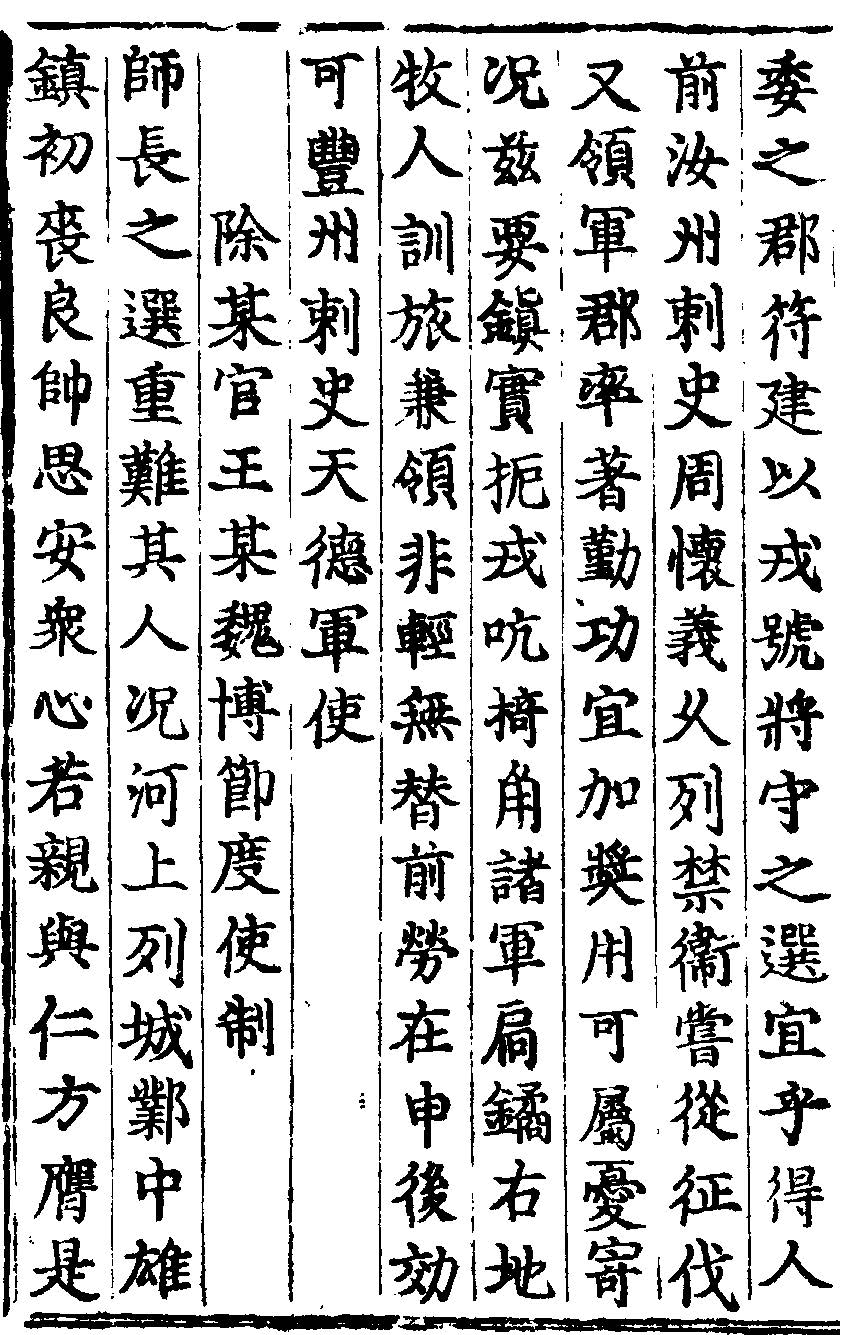 委之郡符建以戎號將守之選宜乎得人
前汝州刺史周懷義乆列禁衞嘗從征伐
又領軍郡率著勤功宜加奬用可屬憂寄
况兹要鎭實扼戎吭掎角諸軍扃鐍右地
牧人訓旅兼領非輕無替前勞在申後効
可豐州刺史天德軍使
除某官王某魏博節度使制
師長之選重難其人况河上列城鄴中雄
鎮初喪良帥思安衆心若親與仁方膺是